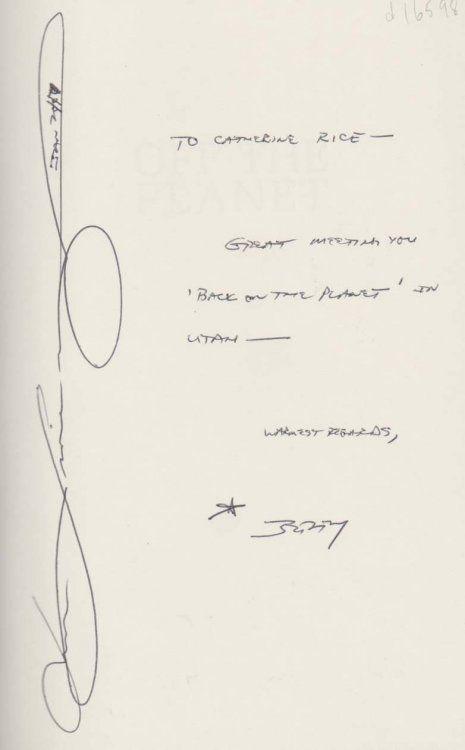 d16598
OFF THE
PLANET
TO CATHERINE RICE —
GREAT MEETING YOU
'BACK ON THE PLANET' IN
UTAH —
WARMEST REGARDS,